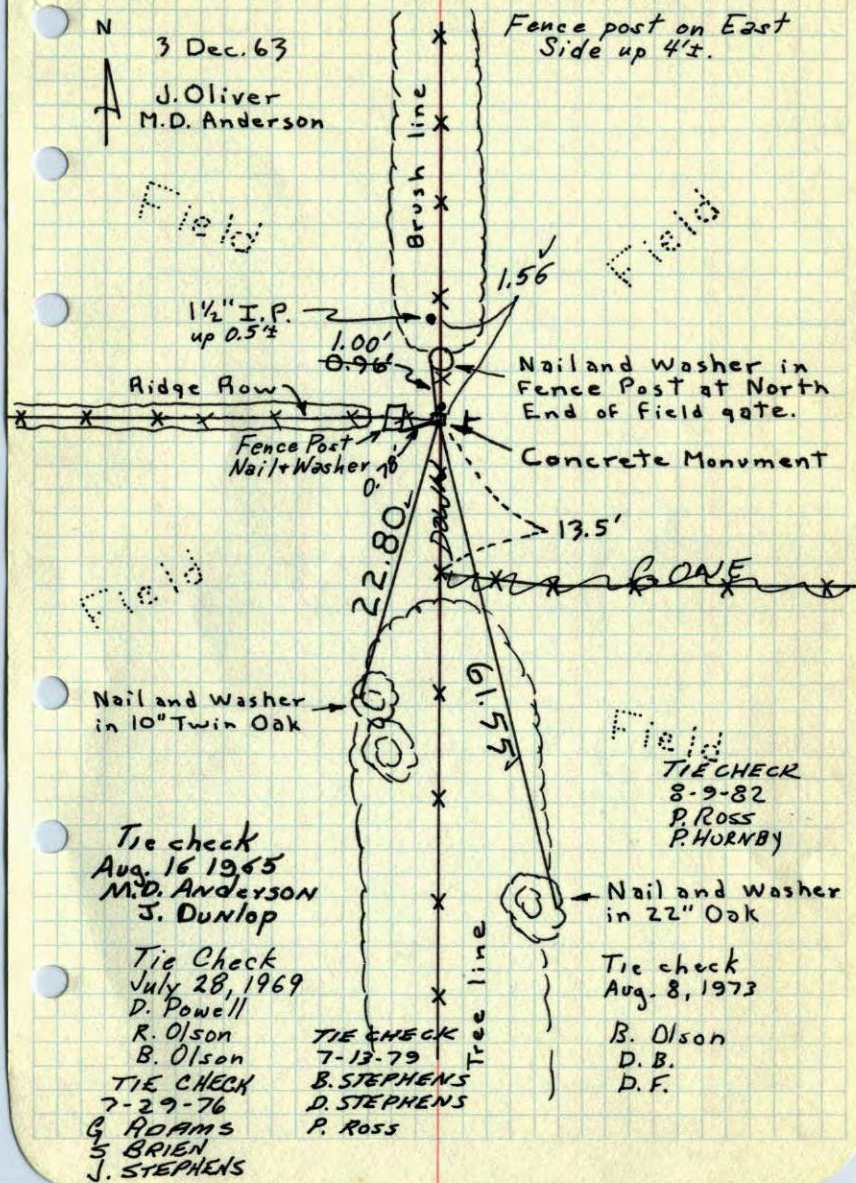 N
3 Dec. 63
J. Oliver
M.D. Anderson
Fence post on East
Side up 4'±.
Brush line
Field
Field
1.56
1½" I.P.
up 0.5'±
1.00'
0.96'
Nail and Washer in
Fence Post at North
End of field gate.
Ridge Row
Fence Post
Nail + Washer
0.78'
Concrete Monument
DOWN
13.5'
22.80
GONE
Field
61.55
Nail and Washer
in 10" Twin Oak
Field
TIE CHECK
8-9-82
P. ROSS
P. HORNBY
Tie check
Aug. 16 1965
M.D. Anderson
J. Dunlop
Nail and Washer
in 22" Oak
Tie Check
July 28, 1969
D. Powell
R. Olson
B. Olson
Tree line
Tie check
Aug. 8, 1973
B. Olson
D. B.
D. F.
TIE CHECK
7-29-76
G ADAMS
S BRIEN
J. STEPHENS
TIE CHECK
7-13-79
B. STEPHENS
D. STEPHENS
P. ROSS